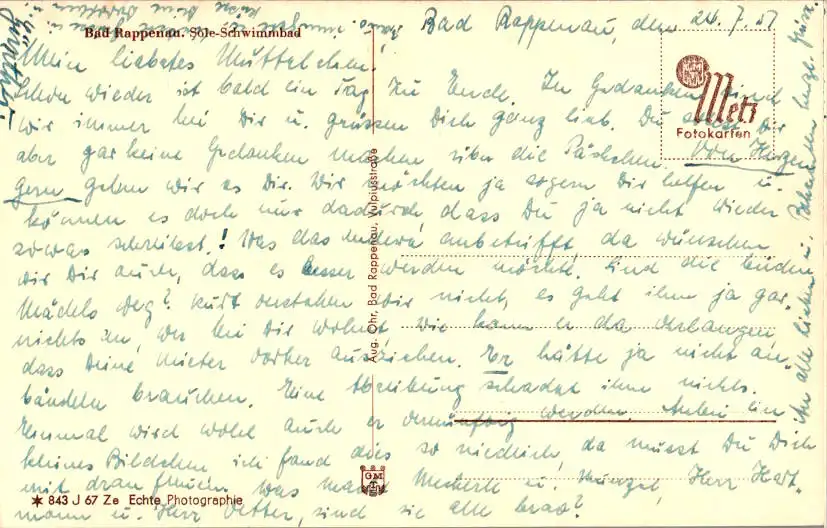 Bad Rappenau. Sole-Schwimmbad
Bad Rappenau, den 24.7.57
Mein liebstes Muttelchen!
Schon wieder ist bald ein Tag zu Ende. In Gedanken sind
wir immer bei Dir u. grüssen Dich ganz lieb. Du sollst Dir
aber gar keine Gedanken machen über die Päckchen. Von Herzen
gern geben wir es Dir. Wir möchten ja so gern Dir helfen u.
können es doch nur dadurch, dass Du ja nicht wieder
sowas schreibst! Was das andere anbetrifft, da wünschen
wir Dir auch, dass es besser werden möchte. Sind die beiden
Mädels weg? Kurt verstehen wir nicht, es geht ihm ja gar
nichts an, wer bei Dir wohnt, wie kann er da verlangen
dass Deine Mieter vorher ausziehen. Er hätte ja nicht an-
bändeln brauchen. Eine Abreibung schadet ihm nichts.
Einmal wird wohl auch er vernünftig werden. Anbei ein
kleines Bildchen ich fand dies so niedlich, da musst Du Dich
mit dran freuen. Was machen u. Herr Hart-
mann u. Herr Vetter, sind sie alle brav?
An alle Lieben u. Bekannten herzl. Grüsse
Metz
Fotokarten
Aug. Ohr, Bad Rappenau, Vulpiusstraße
GM
843 J 67 Ze Echte Photographie